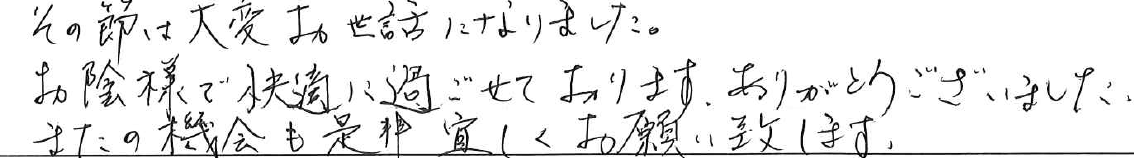 その節は大変お世話になりました。
お陰様で快適に過ごせております。ありがとうございました。
またの機会も是非宜しくお願い致します。